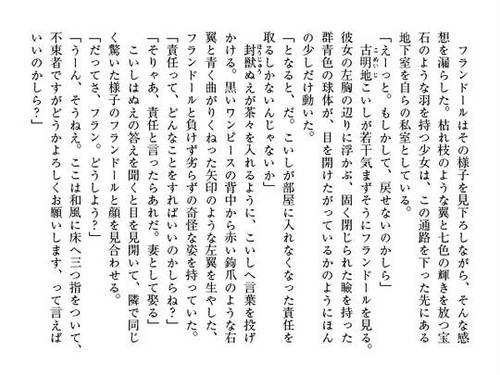 フランドールはその様子を見下ろしながら、そんな感
想を漏らした。枯れ枝のような翼と七色の輝きを放つ宝
石のような羽を持つ少女は、この通路を下った先にある
地下室を自らの私室としている。
「えーっと。もしかして、戻せないのかしら」
　古明地こいしが若干気まずそうにフランドールを見る。
彼女の左胸の辺りに浮かぶ、固く閉じられた瞼を持った
群青色の球体が、目を開けたがっているかのようにほん
の少しだけ動いた。
「となると、だ。こいしが部屋に入れなくなった責任を
取るしかないんじゃないか」
　封獣ぬえが茶々を入れるように、こいしへ言葉を投げ
かける。黒いワンピースの背中から赤い鉤爪のような右
翼と青く曲がりくねった矢印のような左翼を生やした、
フランドールと負けず劣らずの奇怪な姿を持っていた。
「責任って、どんなことをすればいいのかしらね？」
「そりゃあ、責任と言ったらあれだ。妻として娶る」
　こいしはぬえの答えを聞くと目を見開いて、隣で同じ
く驚いた様子のフランドールと顔を見合わせる。
「だってさ、フラン。どうしよう？」
「うーん、そうねえ。ここは和風に床へ三つ指をついて、
不束者ですがどうかよろしくお願いします、って言えば
いいのかしら？」